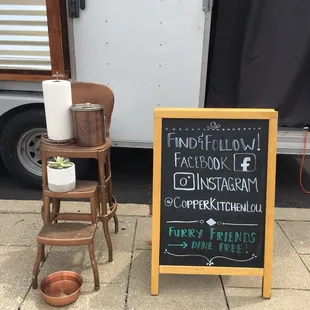 FIND & FOLLOW!
FACEBOOK f
INSTAGRAM
@COPPERKITCHENLOU
FURRY FRIENDS
→ DINE FREE!